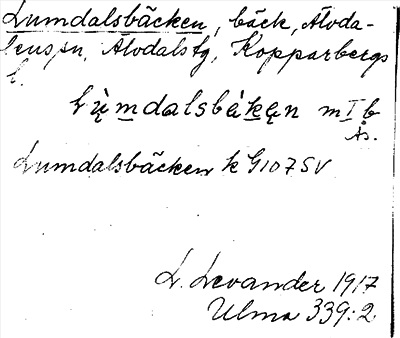 Lumdalsbäcken, bäck, Älvda-
lens sn, Älvdals tg, Kopparbergs
l.
Lùmdalsbä̀kęn m I b
Ås.
Lumdalsbäcken k G107 SV
L. Levander 1917
Ulma 339:2